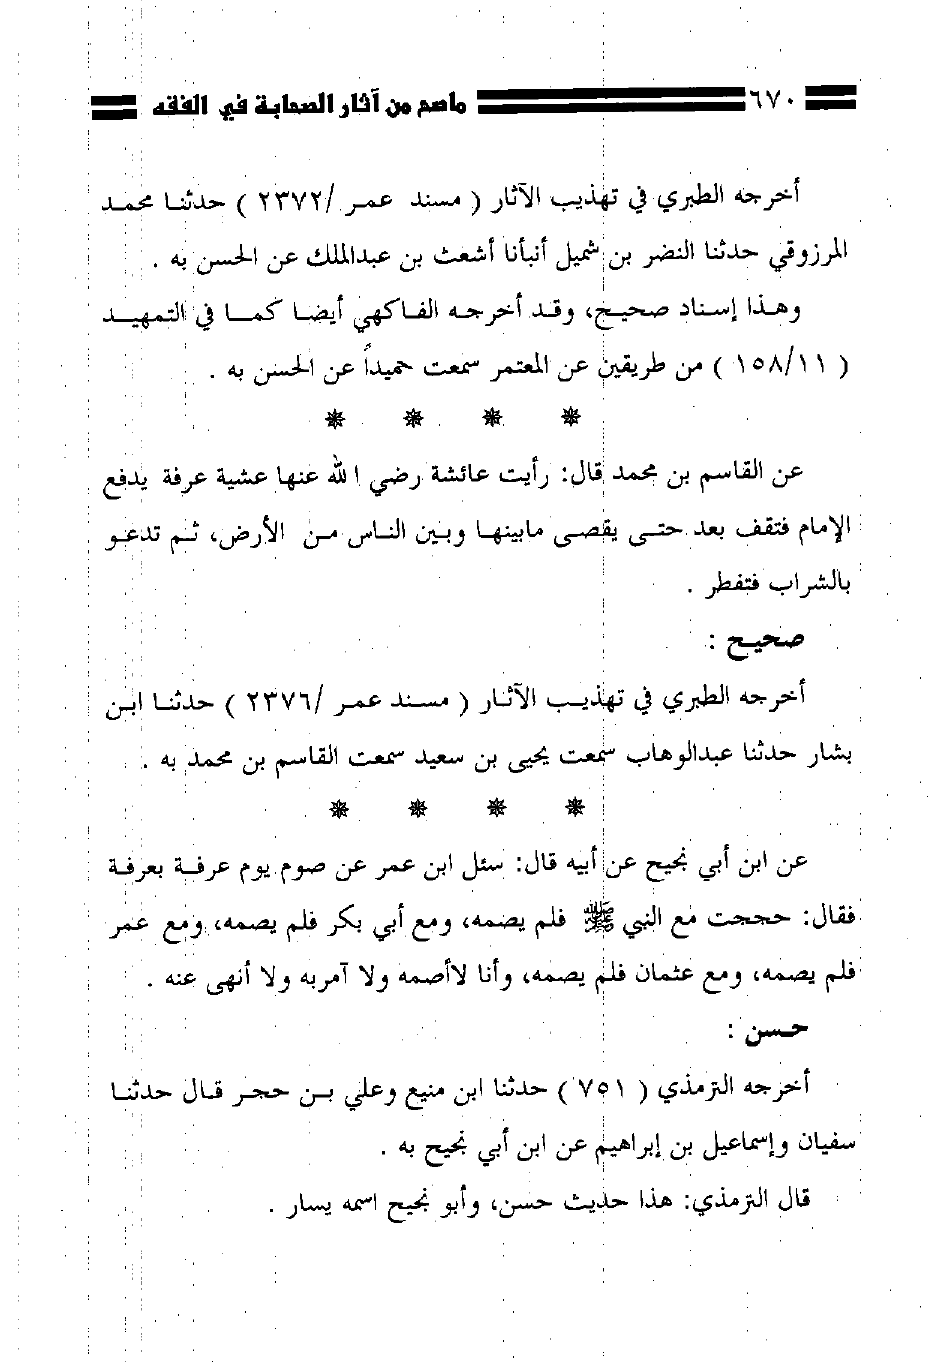 ٦٧٠ ماصح من آثار الصحابة في الفقه
أخرجه الطبري في تهذيب الآثار ( مسند عمر /٢٣٧٢ ) حدثنا محمد
المرزوقي حدثنا النضر بن شميل أنبأنا أشعث بن عبدالملك عن الحسن به .
وهذا إسناد صحيح، وقد أخرجه الفاكهي أيضا كما في التمهيد
( ١٥٨/١١ ) من طريقين عن المعتمر سمعت حميداً عن الحسن به .
عن القاسم بن محمد قال: رأيت عائشة رضي الله عنها عشية عرفة يدفع
الإمام فتقف بعد حتى يقصى مابينها وبين الناس من الأرض، ثم تدعو
بالشراب فتفطر .
صحيح :
أخرجه الطبري في تهذيب الآثار ( مسند عمر /٢٣٧٦ ) حدثنا ابن
بشار حدثنا عبدالوهاب سمعت يحيى بن سعيد سمعت القاسم بن محمد به .
عن ابن أبي نجيح عن أبيه قال: سئل ابن عمر عن صوم يوم عرفة بعرفة
فقال: حججت مع النبي ﷺ فلم يصمه، ومع أبي بكر فلم يصمه، ومع عمر
فلم يصمه، ومع عثمان فلم يصمه، وأنا لاأصمه ولا آمربه ولا أنهى عنه .
حسن :
أخرجه الترمذي ( ٧٥١ ) حدثنا ابن منيع وعلي بن حجر قال حدثنا
سفيان وإسماعيل بن إبراهيم عن ابن أبي نجيح به .
قال الترمذي: هذا حديث حسن، وأبو نجيح اسمه يسار .